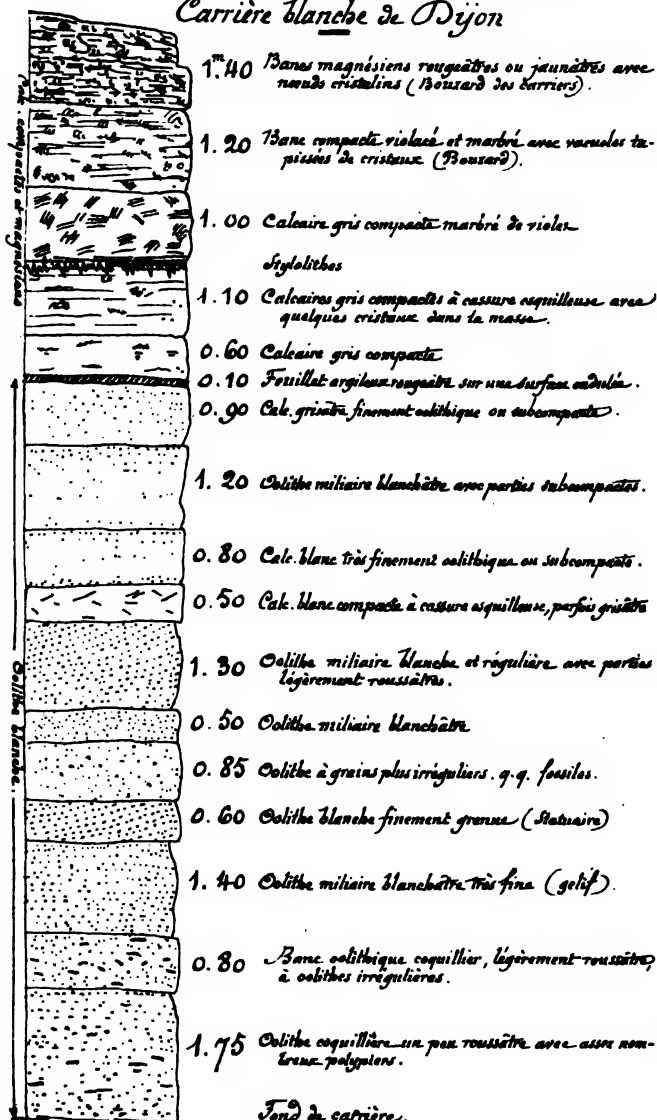 Carrière blanche de Dijon
1.m40 Bancs magnésiens rougeâtres ou jaunâtres avec
nœuds cristalins (Bouzard des carriers).
1.20 Banc compacte violacé et marbré avec vacuoles ta-
pissées de cristaux (Bouzard).
1.00 Calcaire gris compacte marbré de violet
Stylolithes
1.10 Calcaires gris compactes à cassure esquilleuse avec
quelques cristaux dans la masse.
0.60 Calcaire gris compacte
0.10 Feuillet argileux rougeâtre sur une surface ondulée.
0.90 Calc. grisâtre finement oolithique ou subcompacte.
1.20 Oolithe miliaire blanchâtre avec parties subcompactes.
0.80 Calc. blanc très finement oolithique ou subcompacte.
0.50 Calc. blanc compacte à cassure esquilleuse, parfois grisâtre
1.30 Oolithe miliaire blanche et régulière avec parties
légèrement roussâtres.
0.50 Oolithe miliaire blanchâtre
0.85 Oolithe à grains plus irréguliers. q.q. fossiles.
0.60 Oolithe blanche finement grenue (Statuaire)
1.40 Oolithe miliaire blanchâtre très fine (gelif).
0.80 Banc oolithique coquillier, légèrement roussâtre,
à oolithes irrégulières.
1.75 Oolithe coquillière un peu roussâtre avec assez nom-
breux polypiers.
Fond de carrière.
compactes et magnésiens
Oolithe blanche.